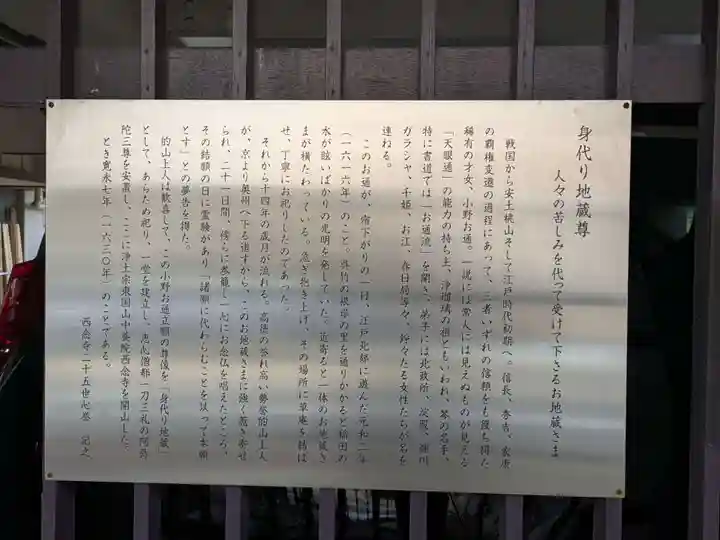 身代り地蔵尊
人々の苦しみを代って受けて下さるお地蔵さま
戦国から安土桃山そして江戸時代初期へ。信長、秀吉、家康
の覇権変遷の過程にあって、三者いずれの信頼をも獲ち得た
稀有の才女、小野お通。一説には常人には見えぬものが見える
「天眼通」の能力の持ち主、浄瑠璃の祖ともいわれ、琴の名手、
特に書道では「お通流」を開き、弟子には北政所、淀殿、細川
ガラシャ、千姫、お江、春日局等々、錚々たる女性たちが名を
連ねる。
このお通が、宿下がりの一日、江戸北郊に遊んだ元和二年
(一六一六年)のこと。呉竹の根岸の里を通りかかると稲田の
水が眩いばかりの光明を発していた。近寄ると一体のお地蔵さ
まが横たわっている。急ぎ抱き上げ、その場所に草庵を結ば
せ、丁寧にお祀りしたのであった。
それから十四年の歳月が流れる。高徳の誉れ高い勢誉的山上人
が、京より奥州へ下る道すがら、このお地蔵さまに強く惹き寄せ
られ、二十一日間、傍らに参籠し一心にお念仏を唱えたところ、
その結願の日に霊験があり「諸願に代わらむことを以って本願
とす」との夢告を得た。
的山上人は歓喜して、この小野お通立願の尊像を「身代り地蔵」
として、あらため祀り、一堂を建立し、恵心僧都一刀三礼の阿弥
陀三尊を安置し、ここに浄土宗東国山中養院西念寺を開山した。
とき寛永七年(一六三〇年)のことである。
西念寺二十五世心誉 記之